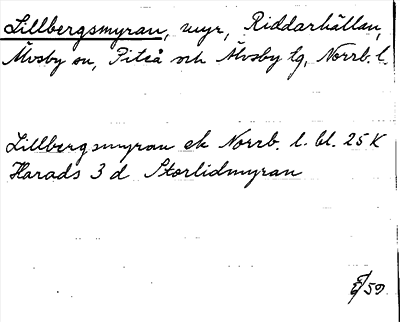 Lillbergsmyran, myr, Riddarhällan,
Älvsby sn, Piteå och Älvsby tg, Norrb. l.
Lillbergsmyran ek Norrb. l. bl. 25 K
Harads 3 d Storlidmyran
59